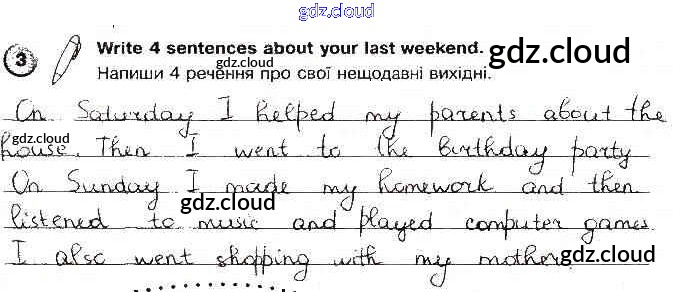 gdz.cloud
3 Write 4 sentences about your last weekend. gdz.cloud
Напиши 4 речення про свої нещодавні вихідні.
On Saturday I helped my parents about the
gdz.cloud gdz.cloud
house. Then I went to the birthday party
On Sunday I made my homework and then
gdz.cloud
listened to music and played computer games.
I also went shopping with my mother.
gdz.cloud
gdz.cloud